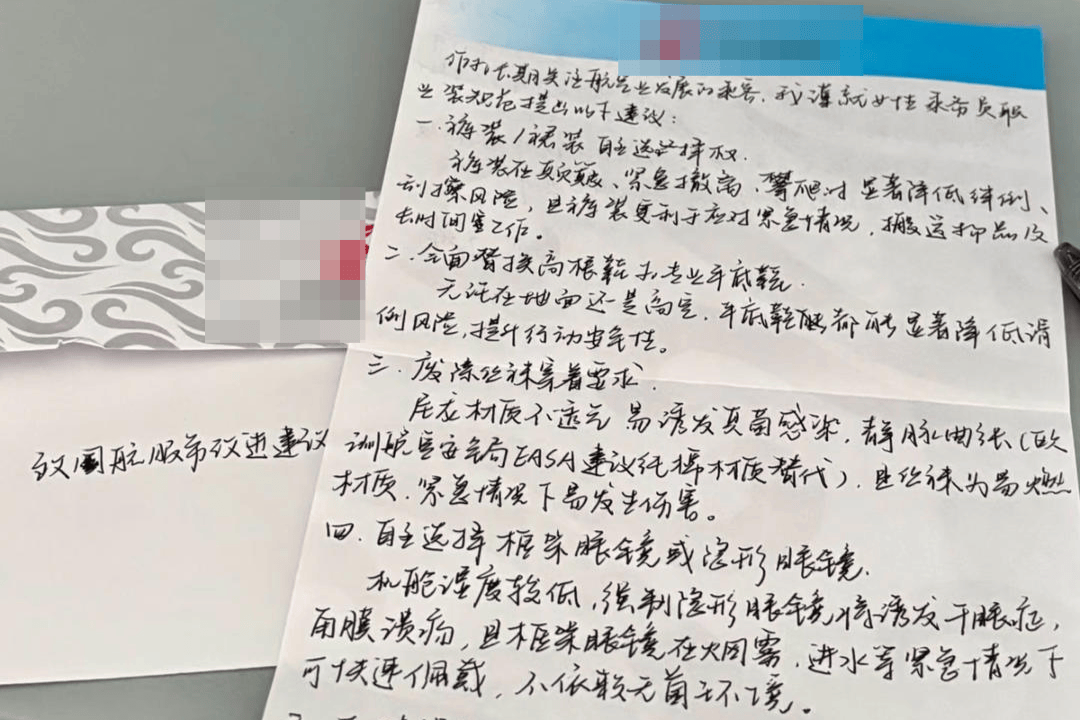 作为长期关注航空业发展的乘客，我谨就女性乘务员职
业装规范提出以下建议：
一．裤装/裙装自主选择权．
裤装在颠簸、紧急撤离、攀爬时显著降低绊倒、
刮擦风险，且裤装更利于应对紧急情况，搬运物品及
长时间工作。
二．全面替换高根鞋为专业平底鞋．
无论在地面还是高空，平底鞋都能显著降低滑
倒风险，提升行动安全性。
三．废除丝袜穿着要求．
尼龙材质不透气易诱发真菌感染，静脉曲张（欧
训航空安全局EASA建议纯棉材质替代），且丝袜为易燃
材质．紧急情况下易发生伤害。
四．自主选择框架眼镜或隐形眼镜．
机舱湿度较低，强制隐形眼镜将诱发干眼症，
角膜溃疡，且框架眼镜在烟雾，进水等紧急情况下
可快速佩戴，不依赖无菌环境。
致国航服饰改进建议